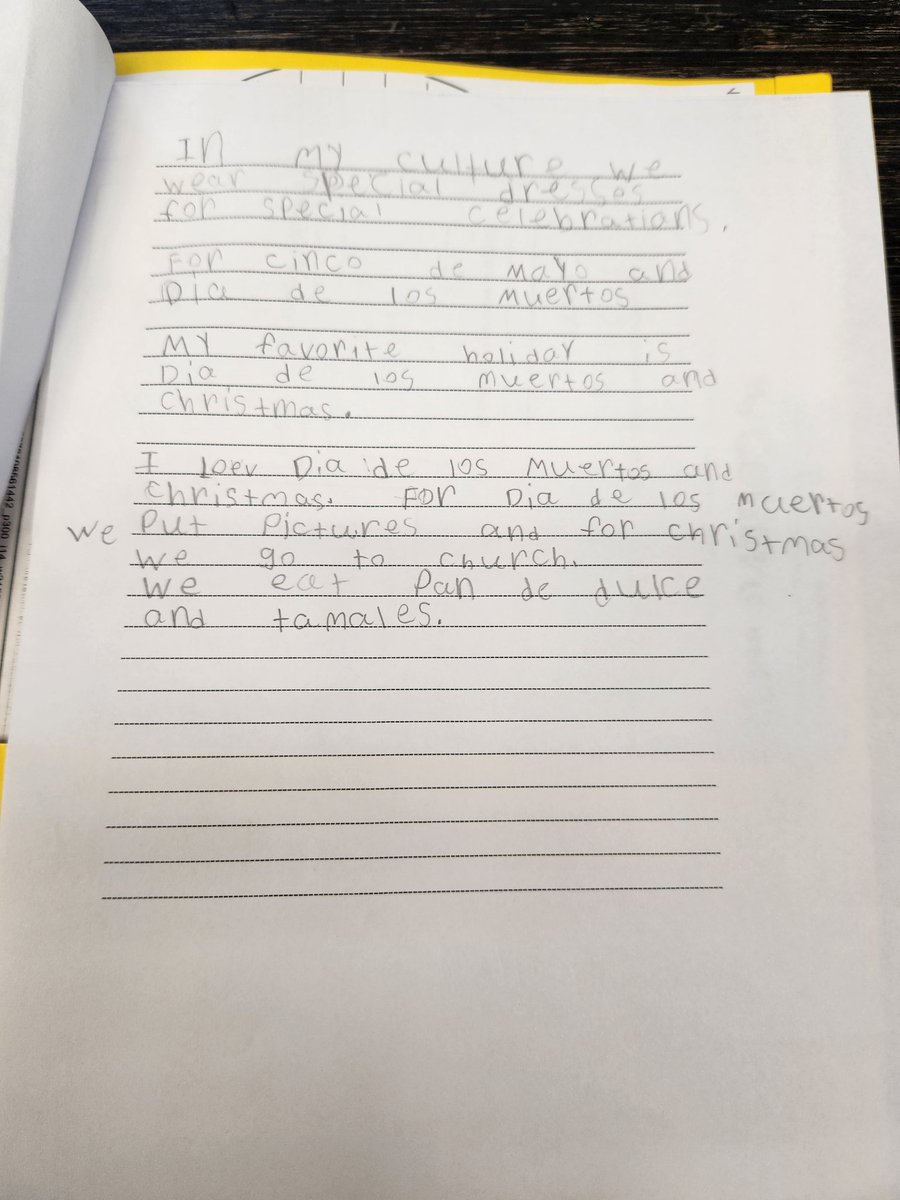 In my culture we
wear special dresses
for special celebrations.
For cinco de mayo and
Dia de los muertos
My favorite holiday is
Dia de los muertos and
christmas.
I loev Dia de los muertos and
christmas. For Dia de los muertos
we put pictures and for christmas
we go to church.
we eat pan de dulce
and tamales.